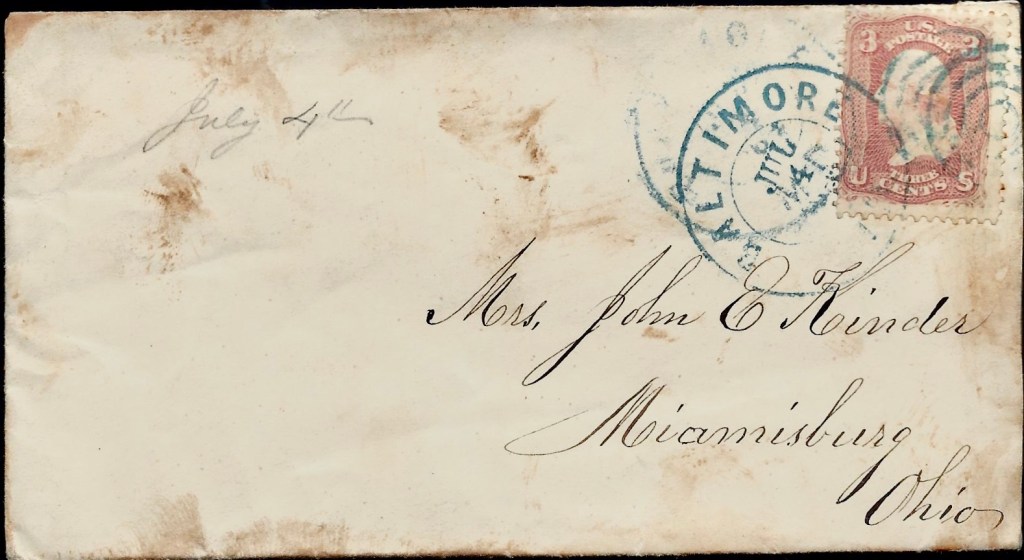 July 4th
BALTIMORE
JUL
4
U.S. POSTAGE
3 3
THREE CENTS
U S
Mrs. John E Kinder
Miamisburg
Ohio